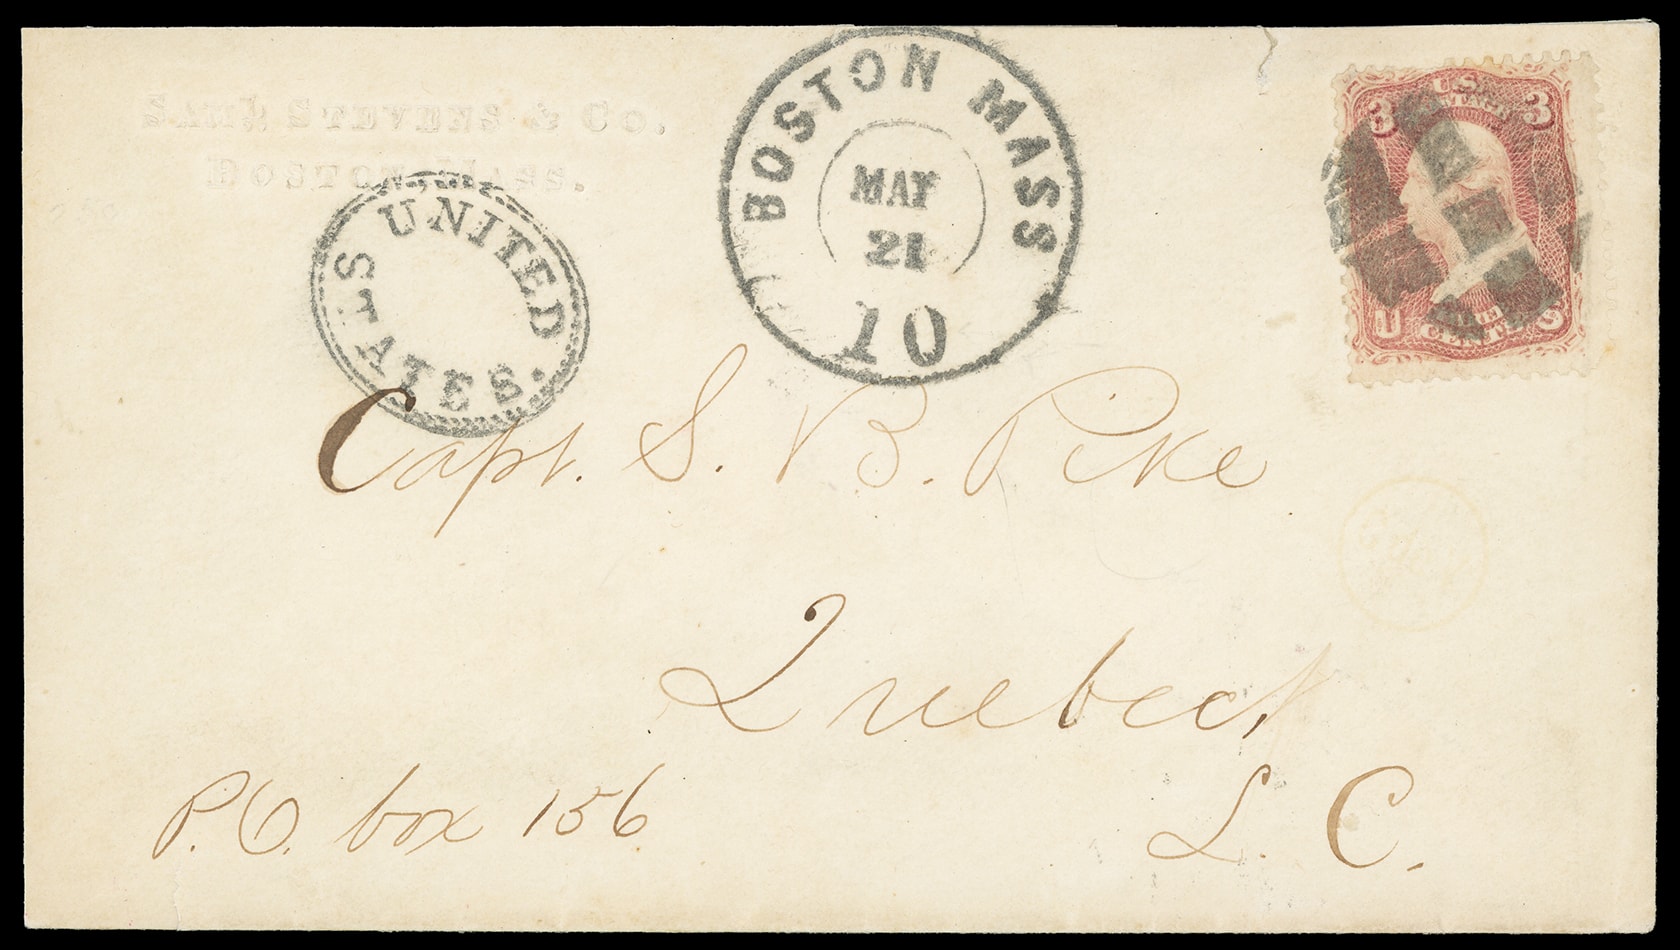 SAML STEVENS & CO.
BOSTON, MASS.
UNITED STATES.
BOSTON MASS
MAY
21
10
3 U.S. 3
POSTAGE
U THREE CENTS S
Capt. S. B. Pike
Quebeck
P.O. box 156
L. C.